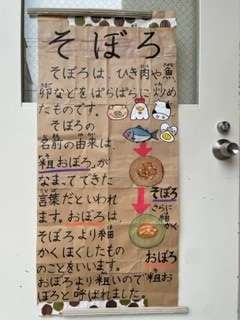 そぼろ
そぼろは、ひき肉や魚、
卵などをぱらぱらに炒め
たものです。
そぼろの
名前の由来は、
「粗おぼろ」が
なまってできた
言葉だといわれ
ます。おぼろは
そぼろより細
かくほぐしたもの
のことをいいます。
おぼろより粗いので「粗お
ぼろ」と呼ばれました。
そぼろ
さらに
細かく
おぼろ